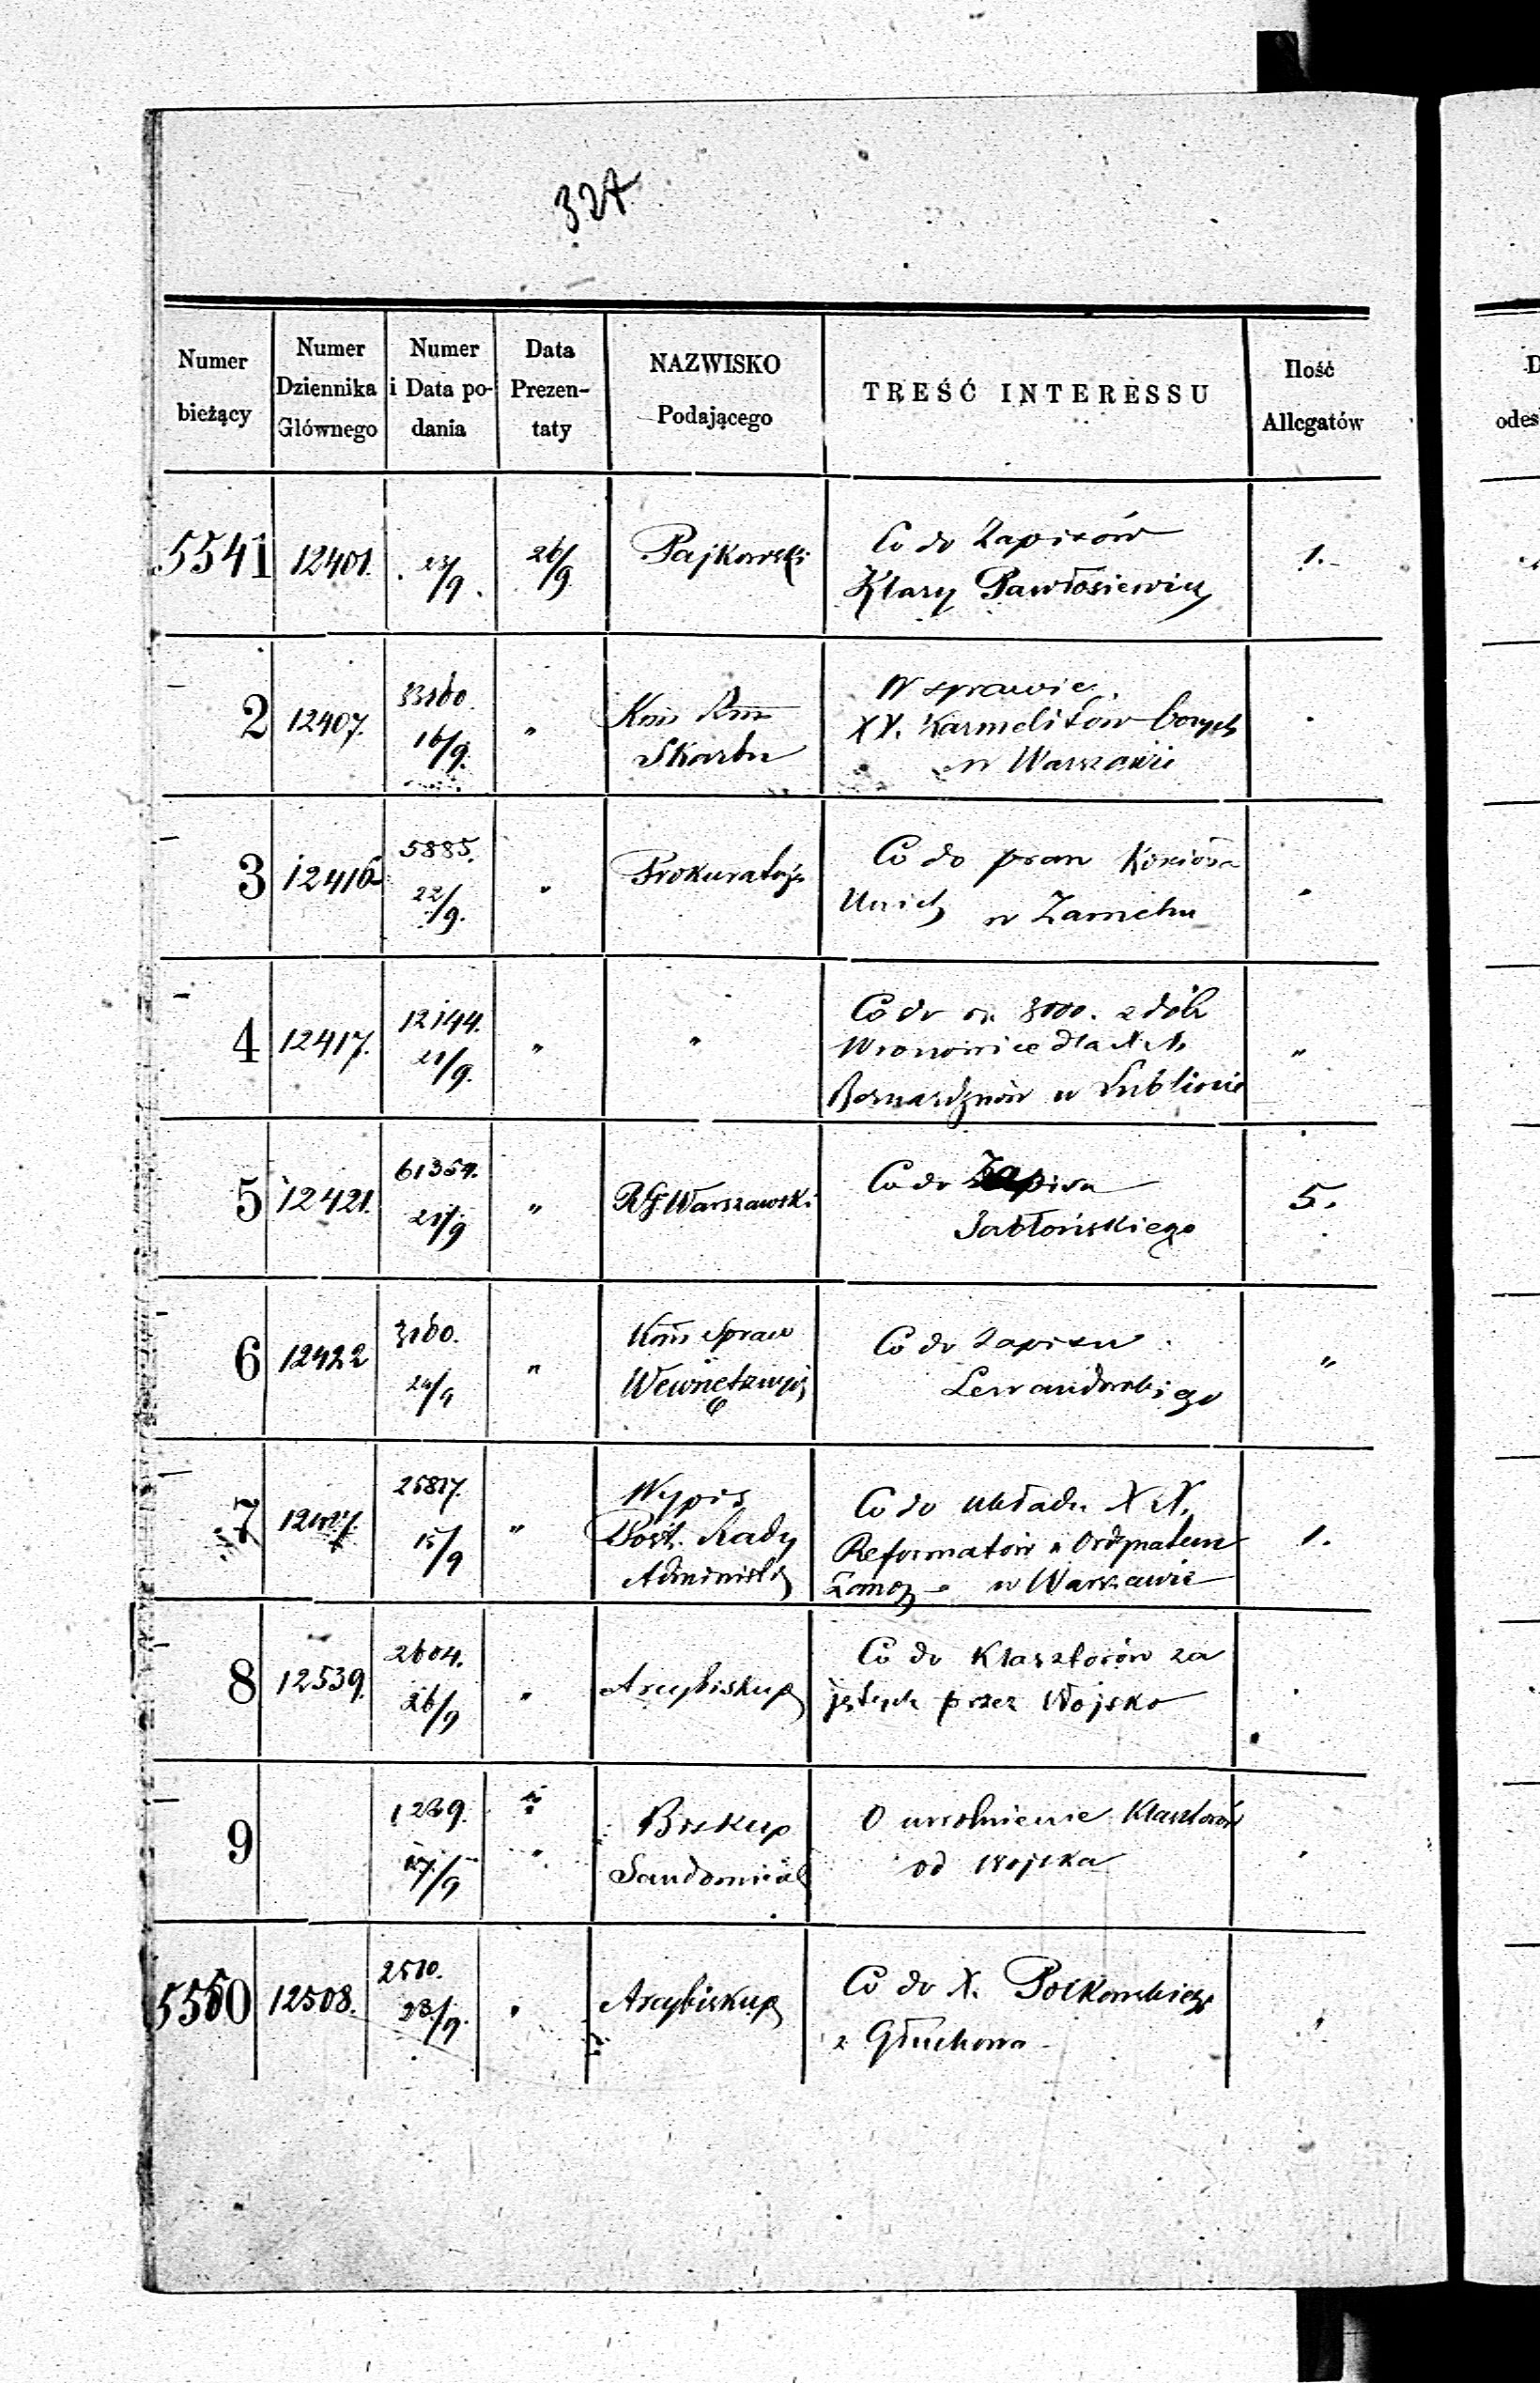 327
Numer bieżący | Numer Dziennika Głównego | Numer i Data podania | Data Prezentaty | NAZWISKO Podającego | TREŚĆ INTERESSU | Ilość Allegatów
5541 | 12401. | /9. | 26/9 | Pajkowski | Co do Zapisów
Klary Pawłosiewicz | 1.
2 | 12407. | 16/9. | " | Skarbu | W sprawie
XX. Karmelitów bosych
w Warszawie
3 | 12416 | 5885.
22/9. | " | Prokuratorja | Co do praw Kościoła
Unick w Zamchu | "
4 | 12417. | 12144.
21/9. | " | " | Co do 3000. z dóbr
dla XX.
Bernardynów w Lublinie | "
5 | 12421. | 61354.
21/9 | " | RG. Warszawski | Co do Zapisu
Jabłońskiego | 5.
6 | 12422 | 3160.
24/9 | " | Kom Spraw
Wewnętrznych | Co do Zapisu
Lewandowskiego | "
7 | 25817.
15/9 | " | Wypis
Post. Rady
Administ | Co do układu XX.
Reformatów z Ordynatem
Zamoy w Warszawie | 1.
8 | 12539. | 2604.
26/9 | " | Arcybiskup | Co do Klasztorów za
jętych przez Wojsko
9 | 1239.
17/9 | " | Biskup
Sandomier | O uwolnienie Klasztorów
od Wojska | "
5550 | 12508. | 2510.
23/9. | " | Arcybiskup | Co do X.
z Głuchowa | "
odes